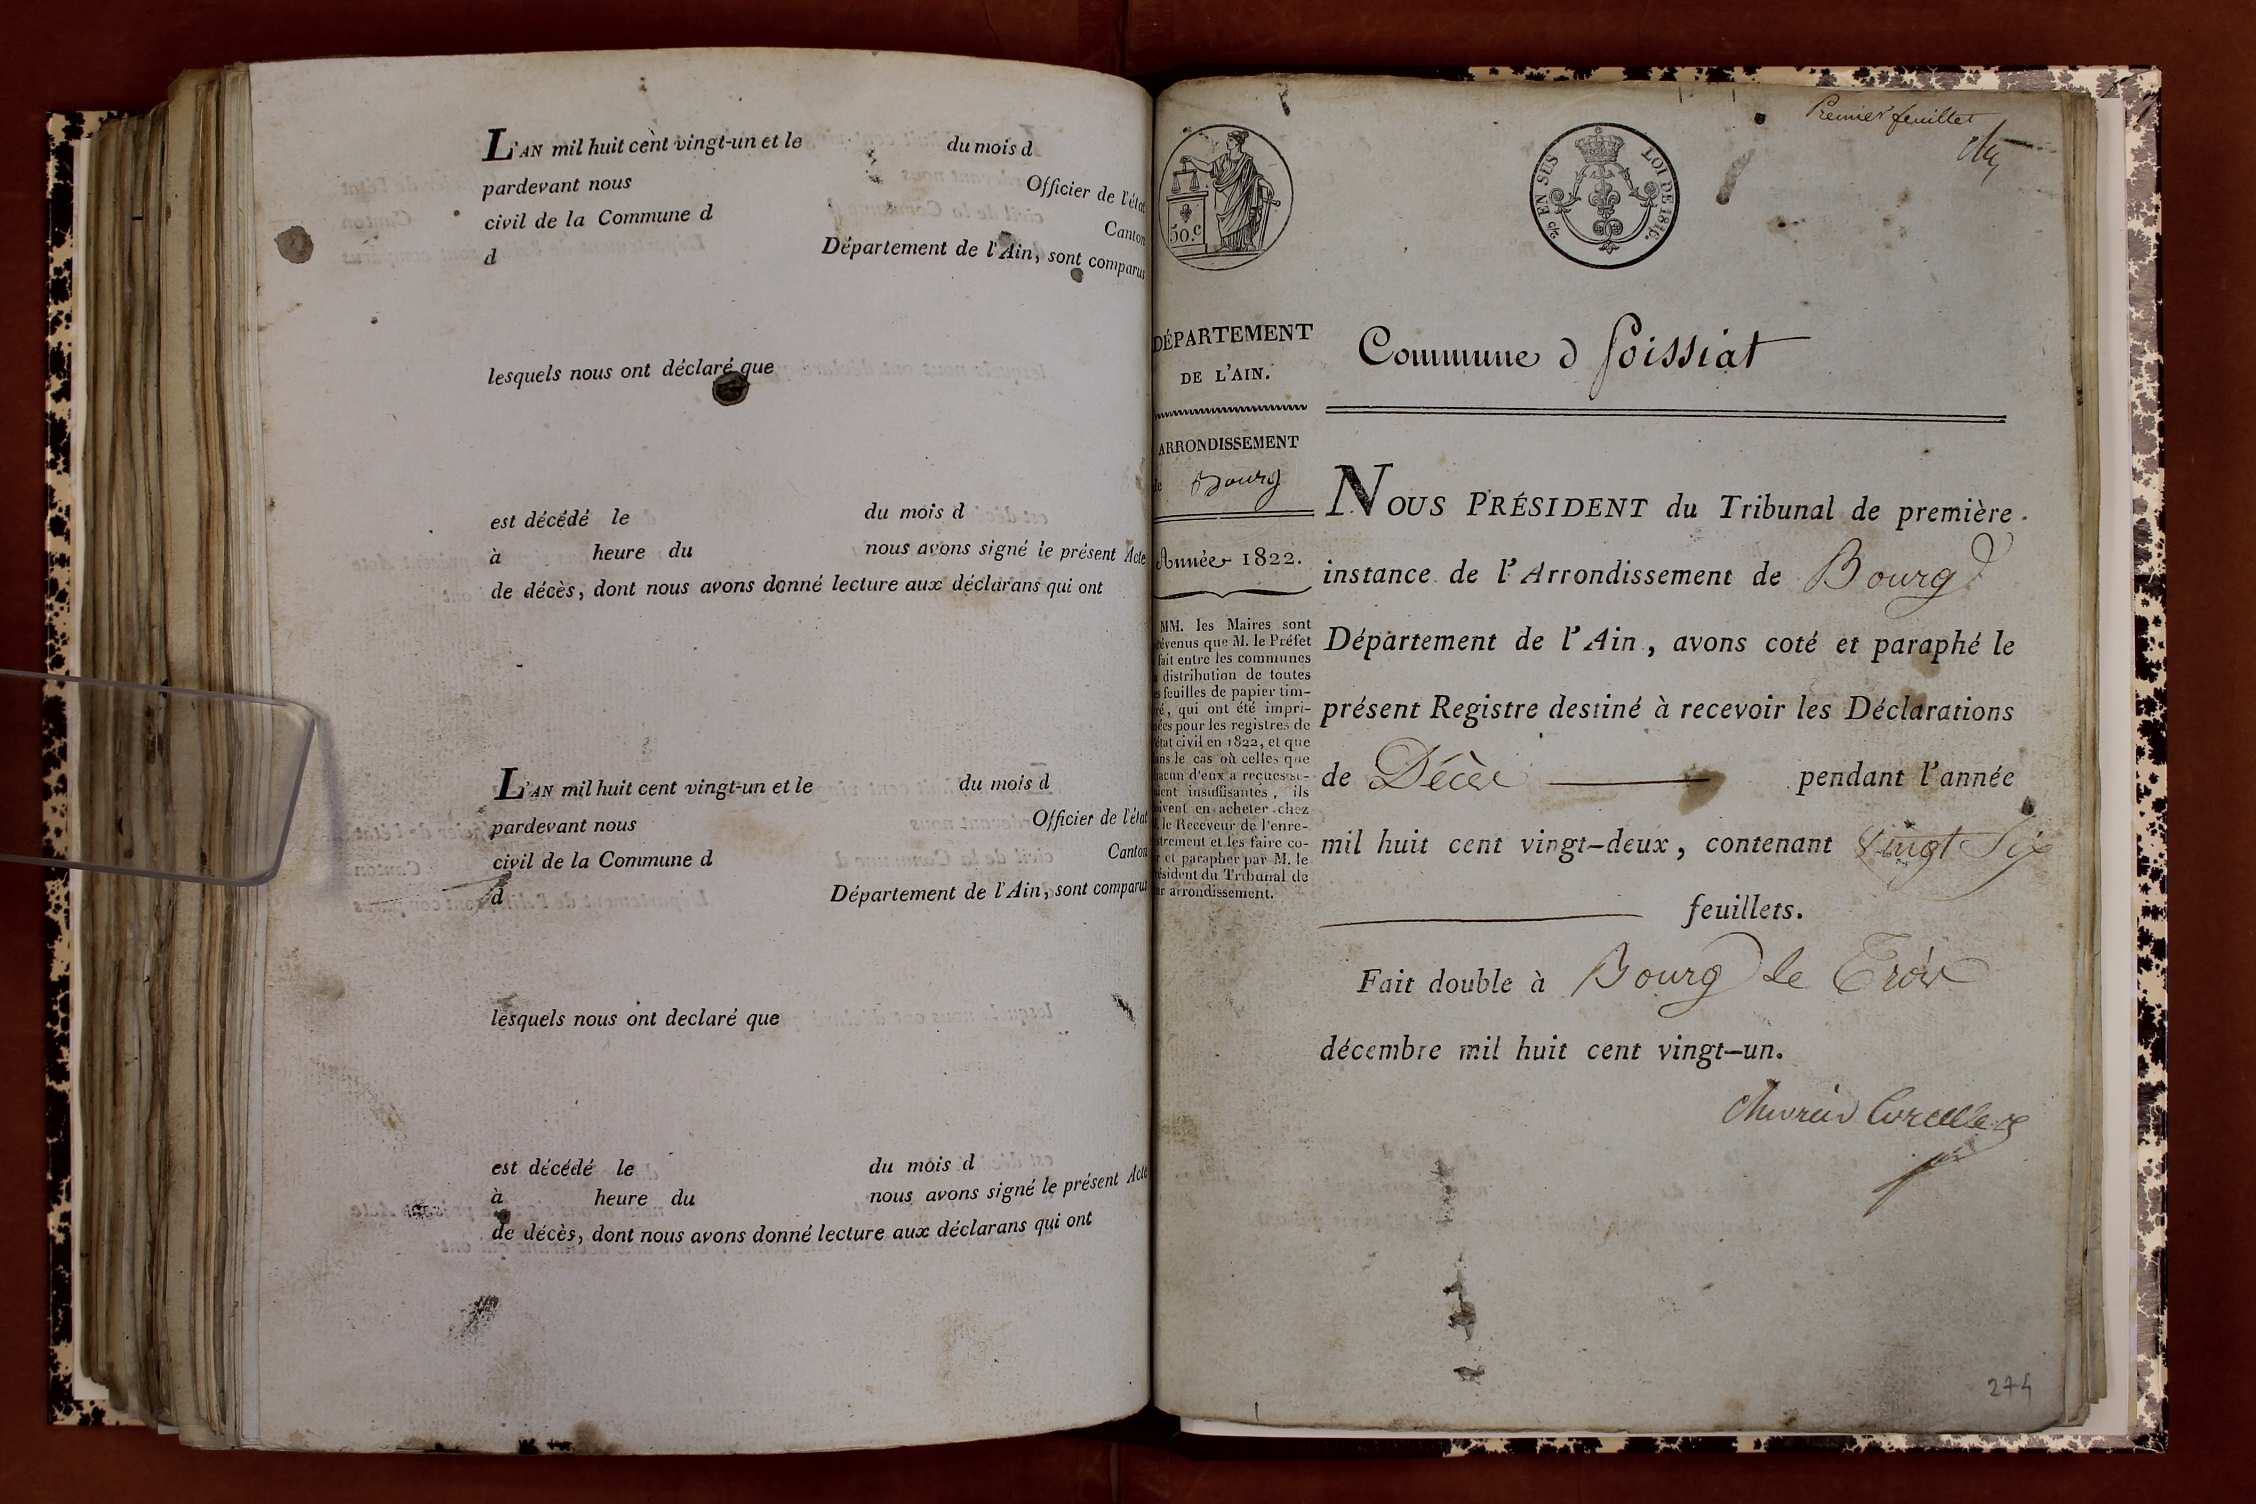 L'AN mil huit cent vingt-un et le du mois d
pardevant nous Officier de l'état
civil de la Commune d Canton
d Département de l'Ain, sont comparus
lesquels nous ont déclaré que
est décédé le du mois d
à heure du nous avons signé le présent Acte
de décès, dont nous avons donné lecture aux déclarans qui ont
L'AN mil huit cent vingt-un et le du mois d
pardevant nous Officier de l'état
civil de la Commune d Canton
d Département de l'Ain, sont comparus
lesquels nous ont declaré que
est décédé le du mois d
à heure du nous avons signé le présent Acte
de décès, dont nous avons donné lecture aux déclarans qui ont
Premier feuillet
50.c
EN SUS
LOI DE 1816.
DÉPARTEMENT
DE L'AIN.
ARRONDISSEMENT
de Bourg
Année 1822.
MM. les Maires sont
prévenus que M. le Préfet
fait entre les communes
distribution de toutes
feuilles de papier tim-
bré, qui ont été impri-
mées pour les registres de
l'état civil en 1822, et que
dans le cas où celles que
chacun d'eux a recues se-
roient insuffisantes, ils
doivent en acheter chez
le Receveur de l'enre-
gistrement et les faire co-
ter et parapher par M. le
Président du Tribunal de
leur arrondissement.
Commune d Foissiat
NOUS PRÉSIDENT du Tribunal de première
instance de l'Arrondissement de Bourg
Département de l'Ain, avons coté et paraphé le
présent Registre destiné à recevoir les Déclarations
de Décès pendant l'année
mil huit cent vingt-deux, contenant vingt Six
feuillets.
Fait double à Bourg le Trois
décembre mil huit cent vingt-un.
274